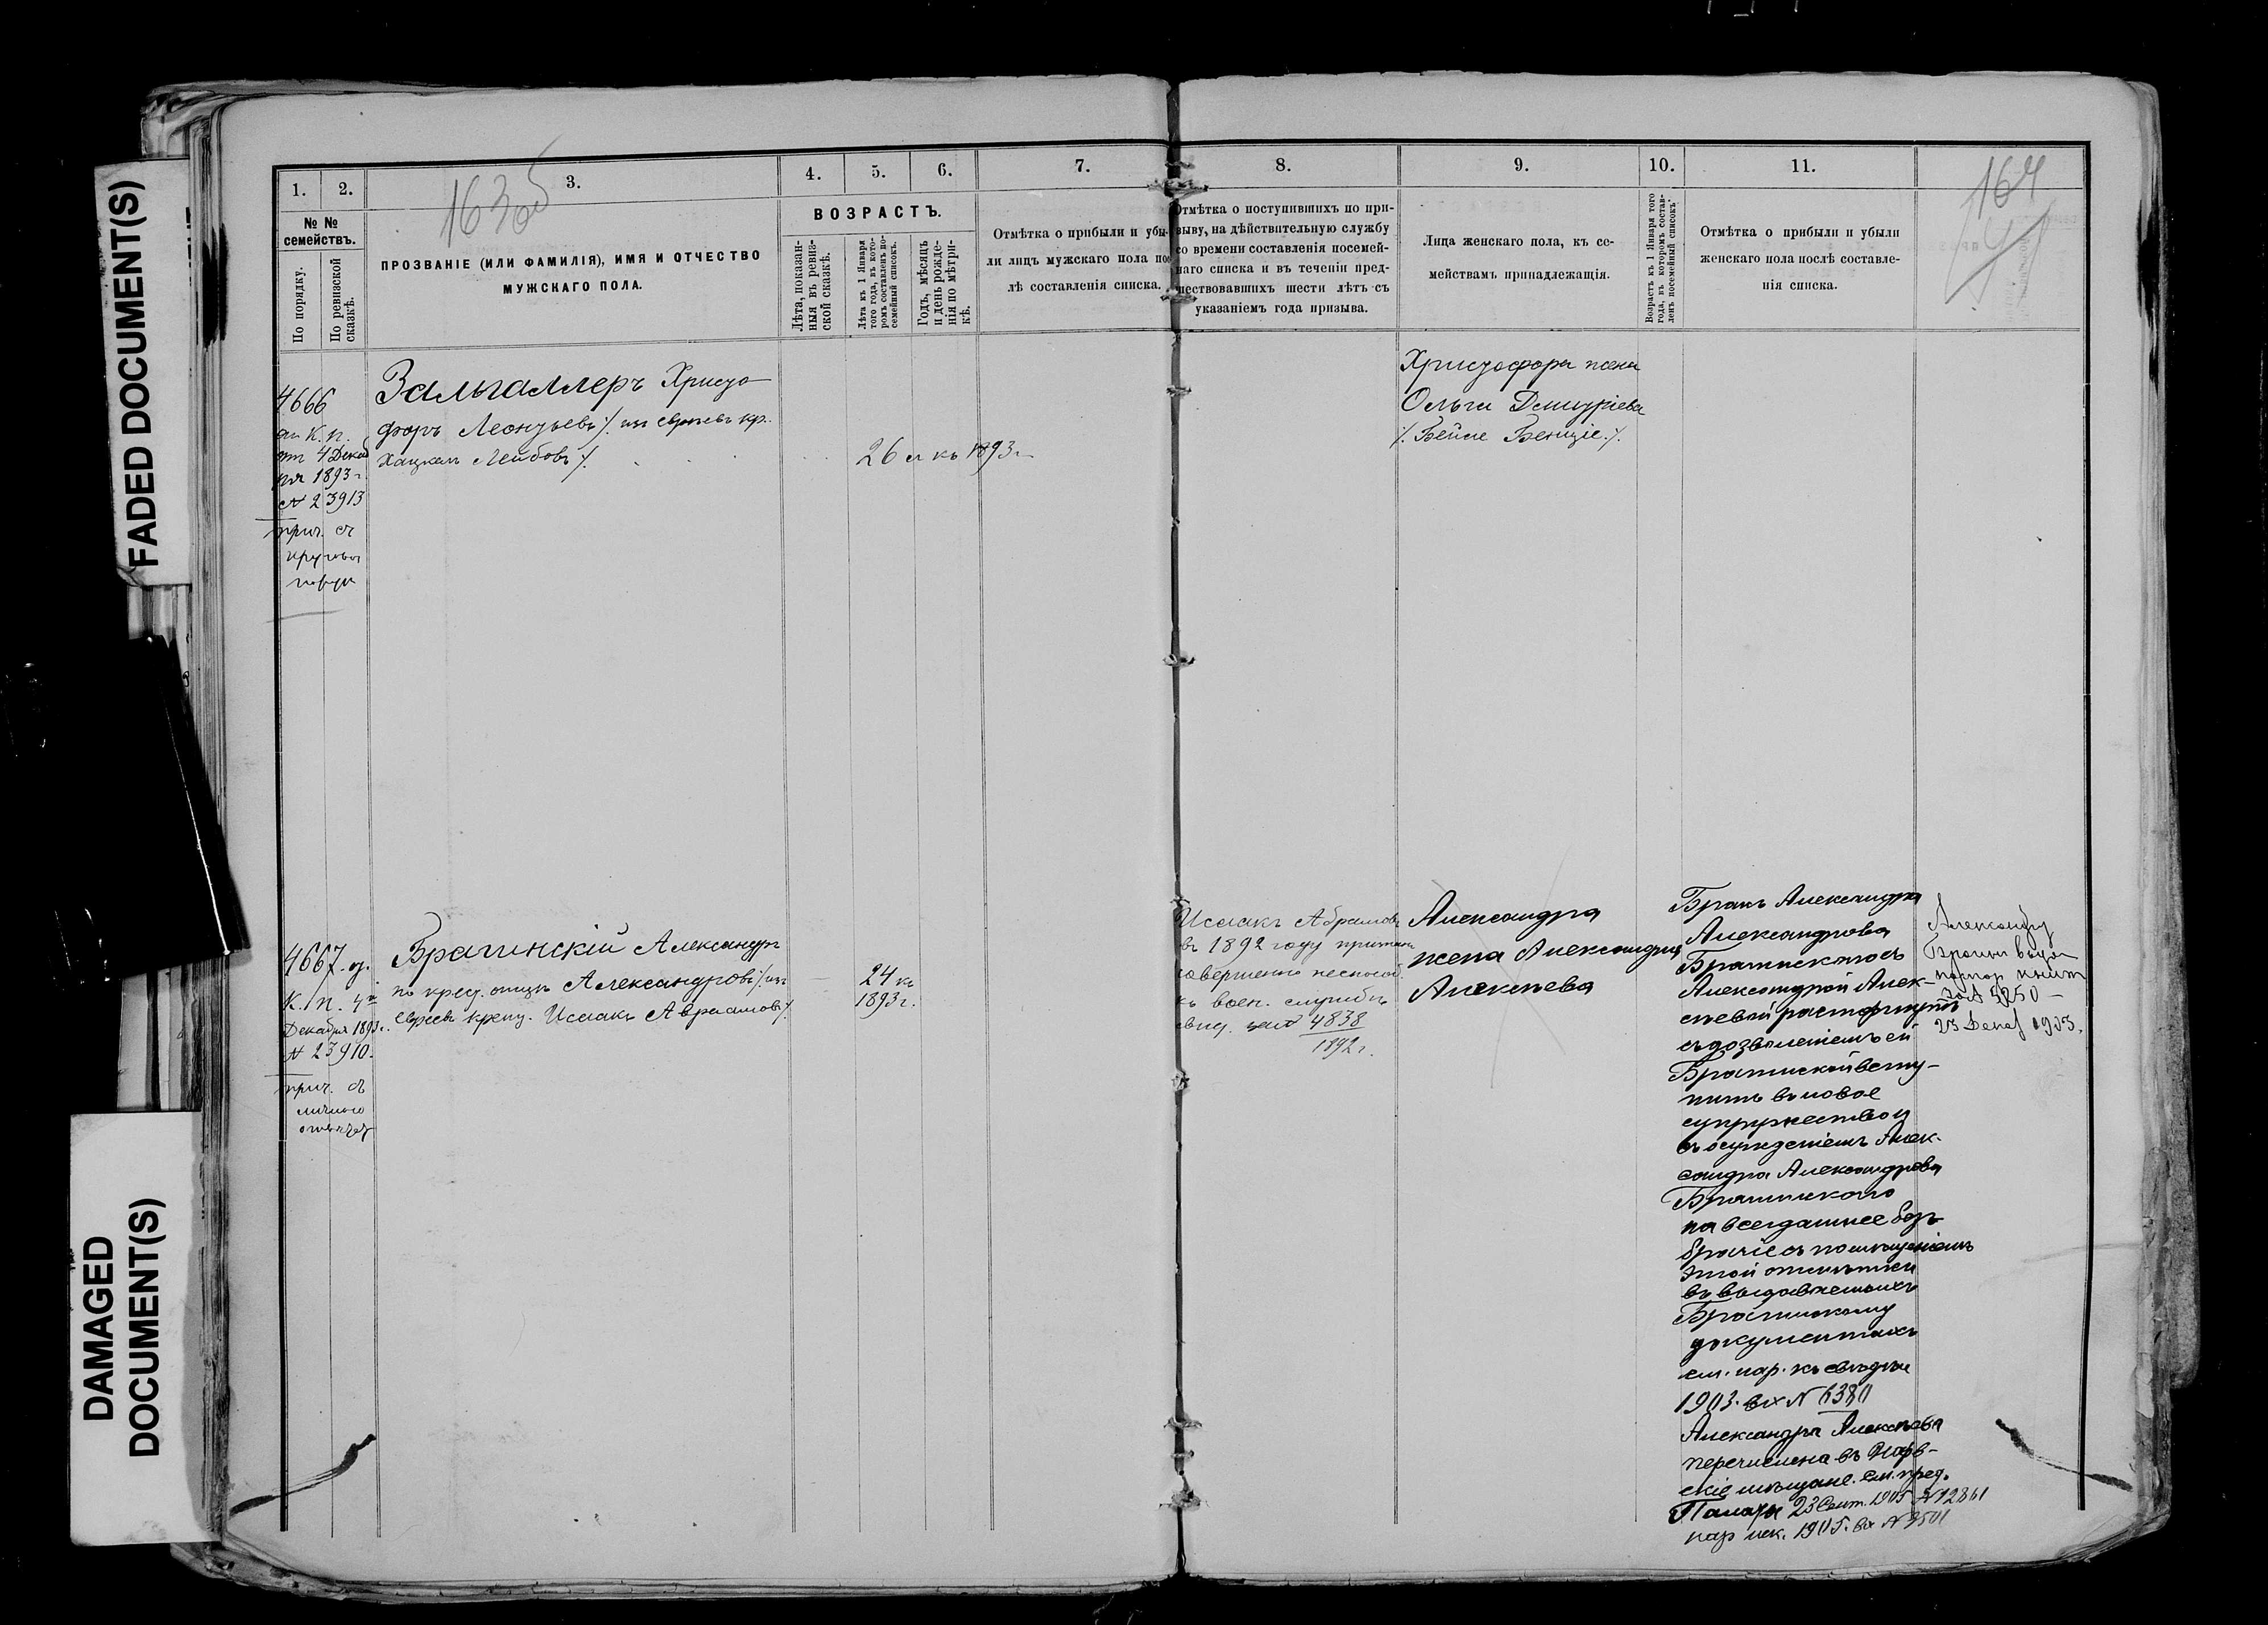 FADED DOCUMENT(S)
DAMAGED
DOCUMENT(S)
1.
2.
3.
4.
5.
6.
7.
8.
9.
10.
11.
163 об
164
№ №
семействъ.
По порядку.
По ревизской
сказкѣ.
ПРОЗВАНІЕ (ИЛИ ФАМИЛІЯ), ИМЯ И ОТЧЕСТВО
МУЖСКАГО ПОЛА.
ВОЗРАСТЪ.
Лѣта, показан-
ныя въ ревиз-
ской сказкѣ.
Лѣта къ 1 Января
того года, въ кото-
ромъ составленъ по-
семейный списокъ.
Годъ, мѣсяцъ
и день рожде-
нія по метри-
кѣ.
Отмѣтка о прибыли и убы-
ли лицъ мужскаго пола пос
лѣ составленія списка.
Отмѣтка о поступившихъ по при-
зыву, на дѣйствительную службу
со времени составленія посемей-
наго списка и въ теченіи пред-
шествовавшихъ шести лѣтъ съ
указаніемъ года призыва.
Лица женскаго пола, къ се-
мействамъ принадлежащія.
Возрастъ къ 1 Января того
года, въ которомъ состав-
ленъ посемейный списокъ.
Отмѣтка о прибыли и убыли
женскаго пола послѣ составле-
нія списка.
4666
К. п.
от 4 Декаб
ря 1893 г.
№ 23913
прич. съ
Зальгаллеръ Христо
форъ Леонтьевъ /. изъ евреевъ кр.
Хацкель Лейбовъ /.
26 л къ 1893 г.
Христофора жена
Ольга Дмитріева
/. Бейле /.
4667. д.
К. п. 4й
Декабря 1893 г.
№ 23910.
прич. съ
личною
Брагинскій Александръ
по крест. отцѣ Александровъ /. изъ
евреевъ крещ. Исаакъ Абрамовъ /.
24 къ
1893 г.
Исаакъ Абрамовъ
въ 1892 году признан
совершенно неспособ
къ воен. службѣ
свид. 4838
1892 г.
Александра
жена Александра
Алексѣева
Бракъ Александра
Александрова
Брагинскаго съ
Александрой Алек-
сѣевой расторгнутъ
съ дозволеніемъ ей
Брагинской всту-
пить въ новое
супружество и
съ осужденіемъ Алек-
сандра Александрова
Брагинскаго
на всегдашнее без-
брачіе съ помѣщеніемъ
этой отмѣтки
въ выдаваемыхъ
Брагинскому
документахъ
см. нар. къ свѣдѣн
1903. вх № 6380
Александра Алексѣева
перечислена въ Нарв-
скіе мѣщане. см. пред.
Палаты 23 Сент. 1905 № 12861
нар иск. 1905. вх № 3501
Александру
за № 5250 —